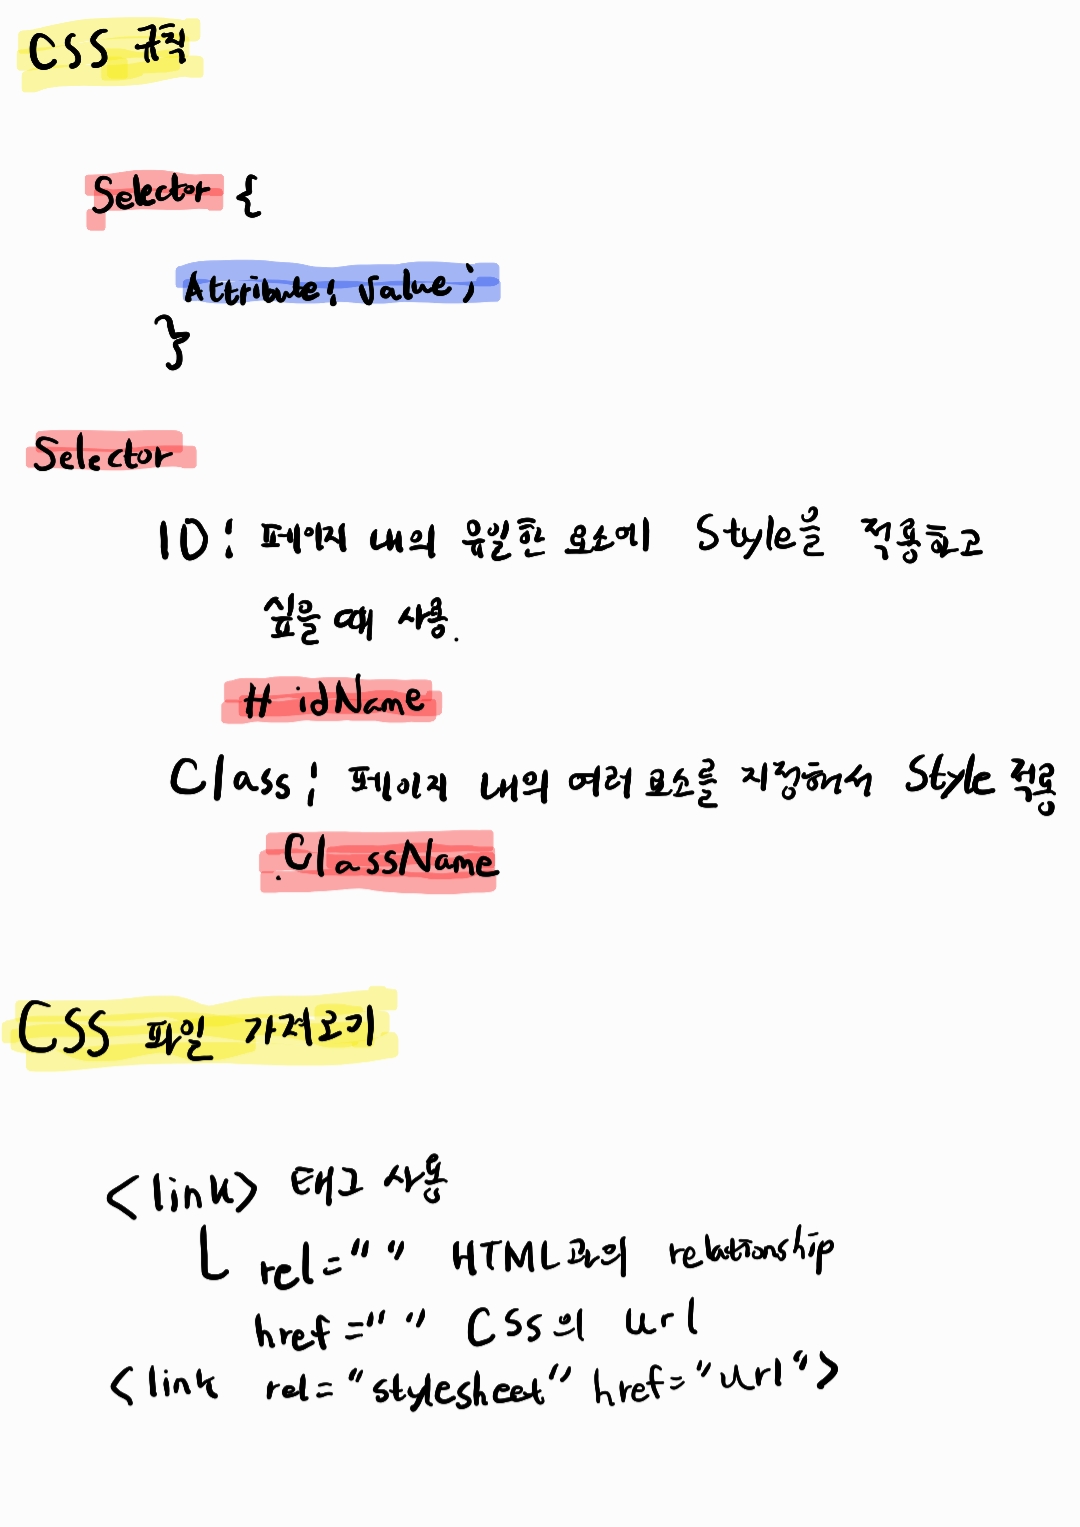 CSS 규칙
Selector {
Attribute: value;
}
Selector
ID: 페이지 내의 유일한 요소에 Style을 적용하고
싶을 때 사용.
# idName
Class: 페이지 내의 여러 요소를 지정해서 Style 적용
.ClassName
CSS 파일 가져오기
<link> 태그 사용
rel="" HTML과의 relationship
href="" CSS의 url
<link rel="stylesheet" href="url">